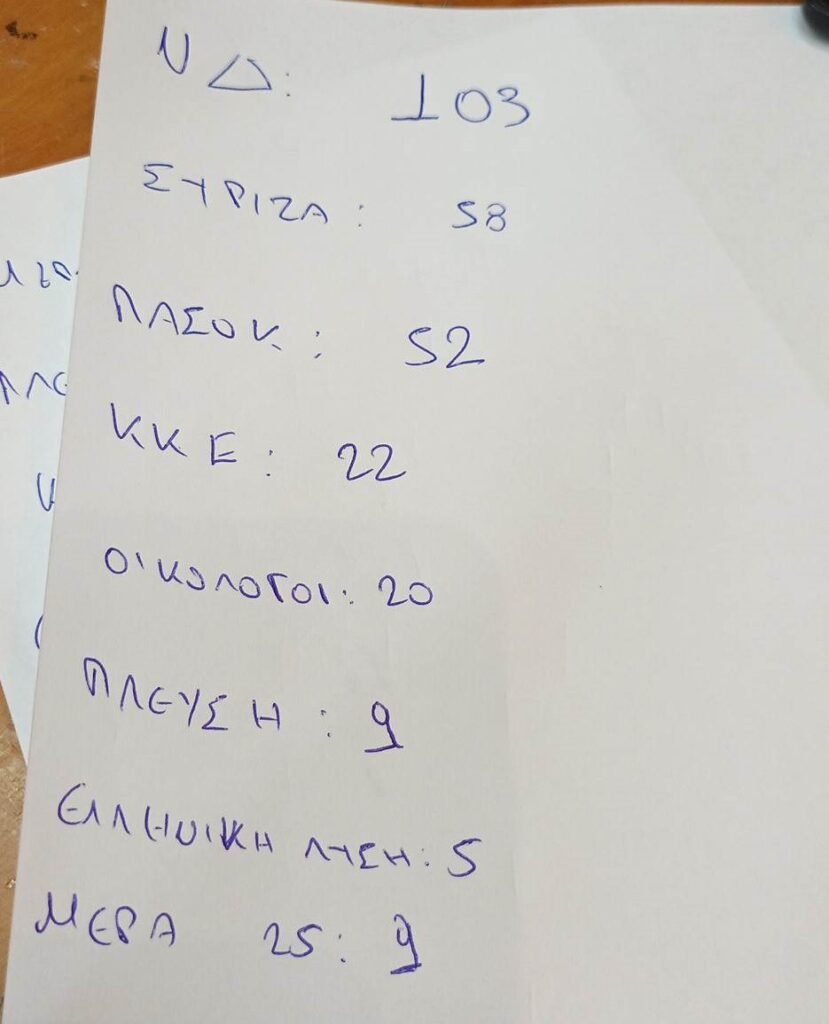 ΝΔ: 103
ΣΥΡΙΖΑ: 58
ΠΑΣΟΚ: 52
ΚΚΕ: 22
ΟΙΚΟΛΟΓΟΙ: 20
ΠΛΕΥΣΗ: 9
ΕΛΛΗΝΙΚΗ ΛΥΣΗ: 5
ΜΕΡΑ 25: 9